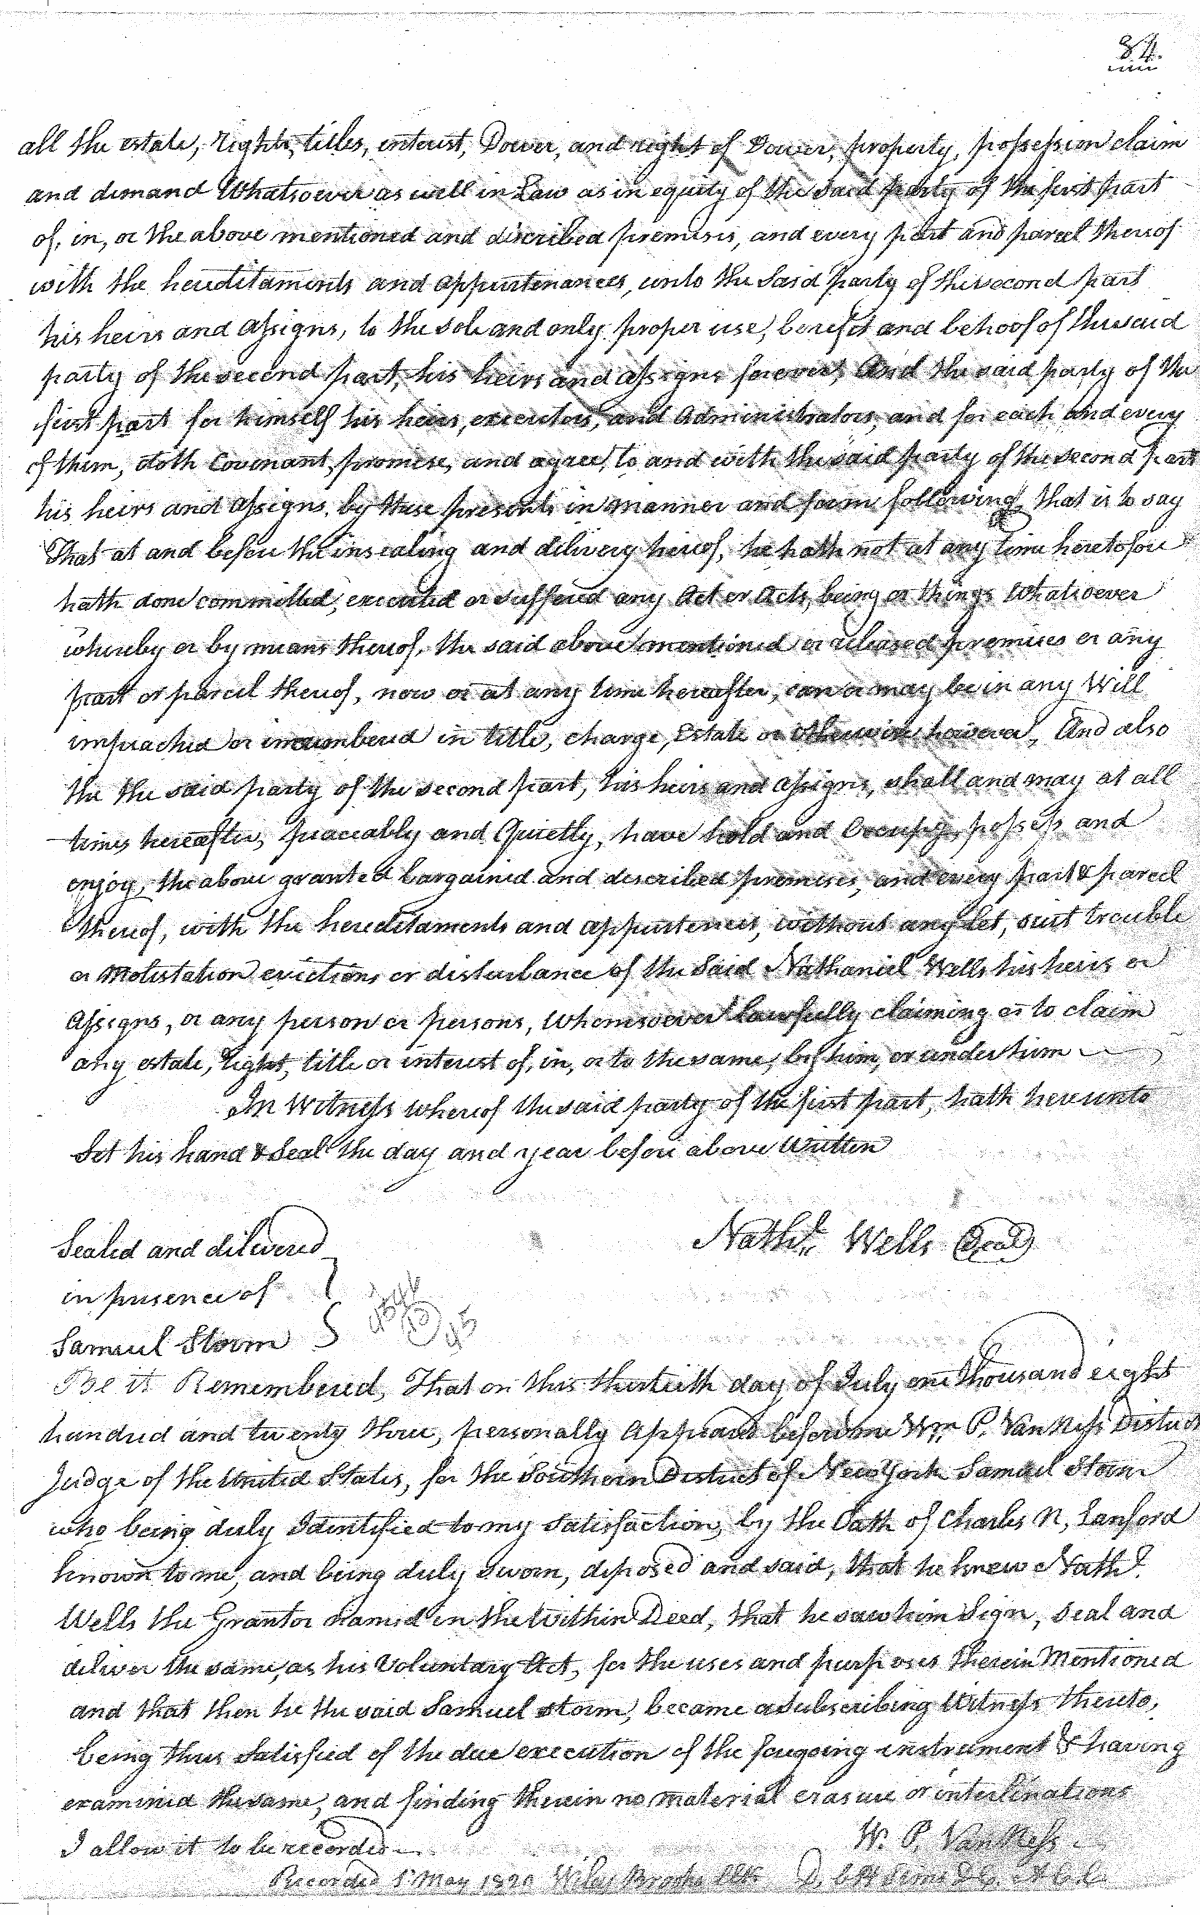 84.
all the estate, rights, titles, interest, Dower, and right of Dower, property, possession claim
and demand Whatsoever as well in Law as in equity of the said party of the first part
of, in, or the above mentioned and discribed premises, and every part and parcel thereof
with the hereditaments and appurtenances, unto the Said party of the second part
his heirs and assigns, to the sole and only proper use, benefit and behoof of the said
party of the second part, his heirs and assigns forever, And the said party of the
first part for himself his heirs, executors, and Administrators, and for each and every
of them, doth Covenant, promise, and agree, to and with the said party of the second part
his heirs and assigns, by these presents in manner and form following, that is to say
That at and before the insealing and delivery hereof, he hath not at any time heretofore
hath done committed, executed or suffered any Act or Acts, being or things Whatsoever
whereby or by means thereof, the said above mentioned or released premises or any
part or parcel thereof, now or at any time hereafter, can or may be in any Will
impeached or incumbered in title, charge, Estate or otherwise however, And also
the the said party of the second part, his heirs and assigns, shall and may at all
times hereafter, peaceably and Quietly, have hold and Occupy, possess and
enjoy, the above granted bargained and described premises, and every part & parcel
thereof, with the hereditaments and appurtences, without any let, suit trouble
or Molestation evictions or disturbance of the Said Nathaniel Wells his heirs or
Assigns, or any person or persons, Whomsoever lawfully claiming or to claim
any estate, right, title or interest of, in, or to the same, by him, or under him
In Witness whereof the said party of the first part, hath hereunto
Set his hand & Seal the day and year before above Written
Nathl. Wells Seal
Sealed and delivered
in presence of
Samuel Storm
Be it Remembered, That on this thirtieth day of July one thousand eight
hundred and twenty three, personally Appeared before me Wm. P. Van Ness District
Judge of the United States, for the Southern District of New York Samuel Storm
who being duly Identified to my satisfaction, by the Oath of Charles N, Lanford
known to me, and being duly sworn, deposed and said, that he knew Nathl.
Wells the Grantor named in the within Deed, that he saw him Sign, seal and
deliver the same, as his Voluntary Act, for the uses and purposes therein Mentioned
and that then he the said Samuel Storm, became a subscribing Witness thereto,
being thus satisfied of the due execution of the foregoing instrument & having
examined the same, and finding therein no material erasure or interlinations
I allow it to be recorded
W. P. Van Ness
Recorded 1st May 1820 Wiley Brooks Clk